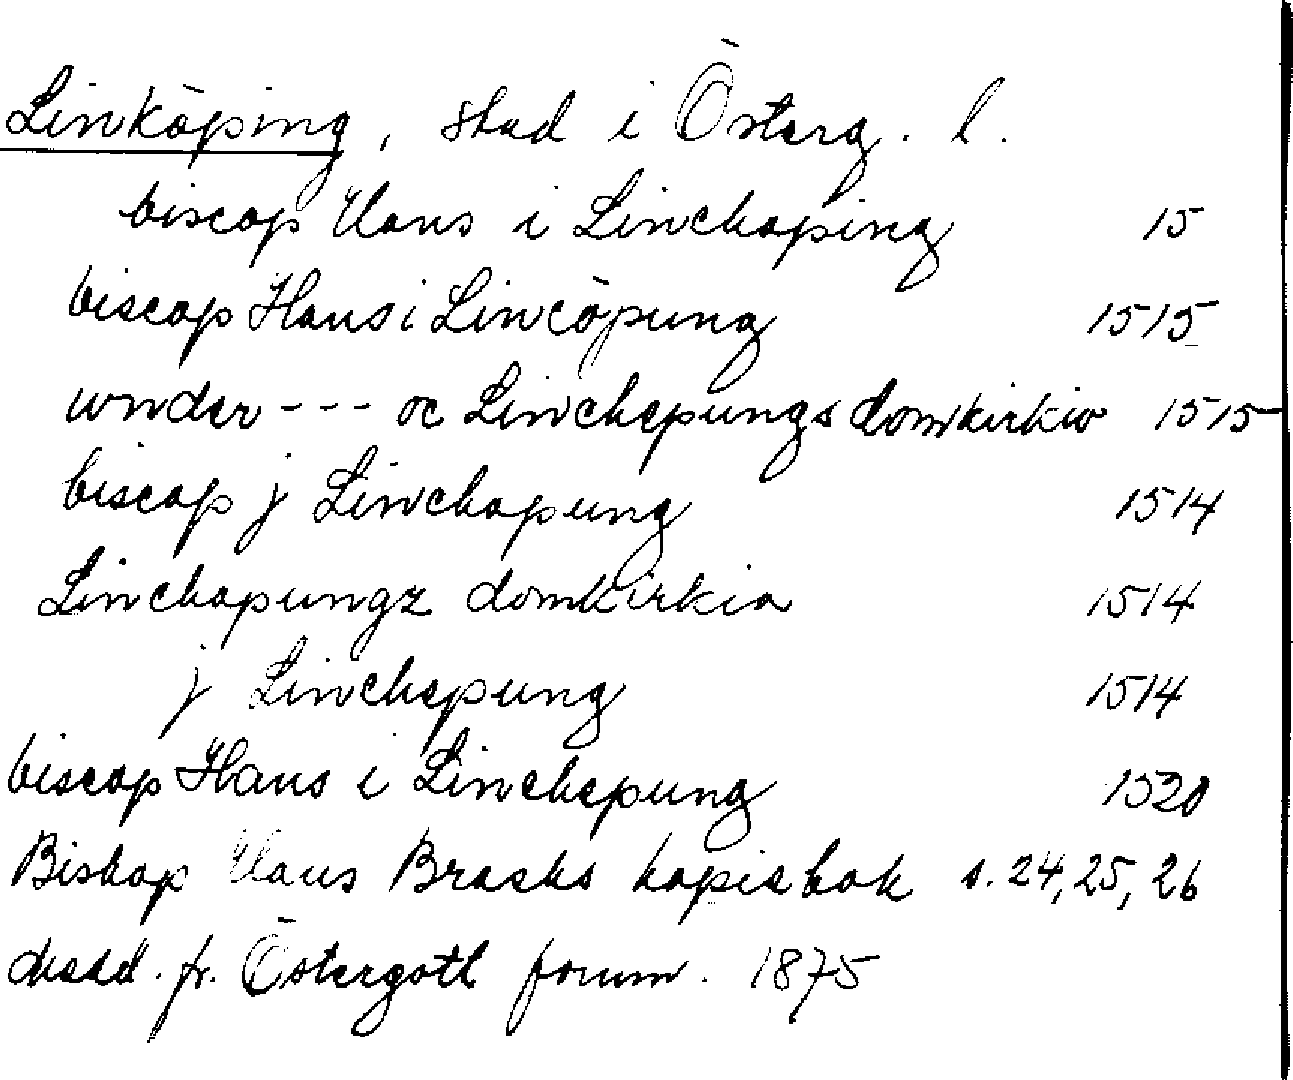 Linköping, stad i Österg. l.
biscop Hans i Linchoping 15
biscop Hans i Lincöpung 1515
wnder --- oc Linchepungs domkirkio 1515
biscop j Linchopung 1514
Linchopungz domkirkia 1514
j Linchepung 1514
biscop Hans i Linchepung 1520
Biskop Hans Brasks kopiebok s. 24, 25, 26
Medd. fr. Östergötl fornm. 1875